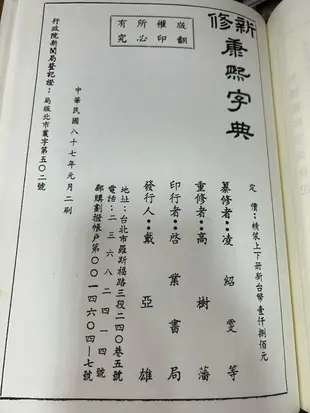 新修康熙字典
版權所有
翻印必究
定價：精裝上下册新台幣壹仟捌佰元
纂修者：凌紹雯等
重修者：高樹藩
印行者：啓業書局
發行人：戴亞雄
地址：台北市羅斯福路三段二四０巷五號
電話：二三六八二四一四
郵購劃撥帳戶第００一四六０四—七號
中華民國八十七年元月二刷
行政院新聞局登記證：局版北市業字第五０二號